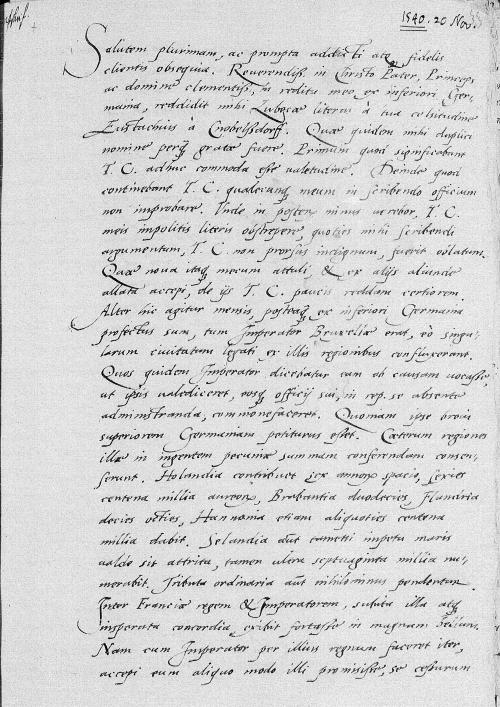 1540. 20 Nov.
Salutem plurimam, ac prompta addicti atq fidelis
clientis obsequia. Reverendiss. in Christo Pater, Princeps
ac domine clementiss, in reditu meo ex inferiori Ger-
mania, reddidit mihi Lubecæ literas à tua celsitudine
Eustachius à Cnobelsdorff. Quæ quidem mihi duplici
nomine perq gratæ fuere. Primum quod significabant
T. C. adhuc commoda esse valetudine. Deinde quod
continebant T. C. qualecunq meum in scribendo officium
non improbare. Unde in poster minus verebor, T. C.
meis impolitis literis obstrepere, quoties mihi scribendi
argumentum, T. C. non prorsus indignum, fuerit oblatum.
Quæ nova itaq mecum attuli, & ex alijs aliunde
allata accepi, de ijs T. C. paucis reddam certiorem.
Alter hic agitur mensis, posteaq ex inferiori Germania
profectus sum, tum Imperator Bruxellæ erat, eò singu-
larum civitatum legati ex illis regionibus confluxerant.
Quos quidem Imperator dicebatur eam ob causam vocasse,
ut ipsis valediceret, eosq officij sui, in rep. se absente
administranda, commonefaceret. Quoniam ipse brevi
superiorem Germaniam petiturus esset. Cæterum regiones
illæ in ingentem pecuniæ summam conferendam consen-
serunt. Holandia contribuet sex annor spacio, sexies
centena millia aureor, Brabantia duodecies, Flandria
decies octies, Hannonia etiam aliquoties centena
millia dabit. Selandia aut tametsi impetu maris
valde sit attrita, tamen ultra septuaginta millia nu-
merabit. Tributa ordinaria aut nihilominus pendentur.
Inter Franciæ regem & Imperatorem, subita illa atq
insperata concordia, exibit fortasse in magnum bellum.
Nam cum Imperator per illius regnum faceret iter,
accepi eum aliquo modo illi promisisse, se cessurum